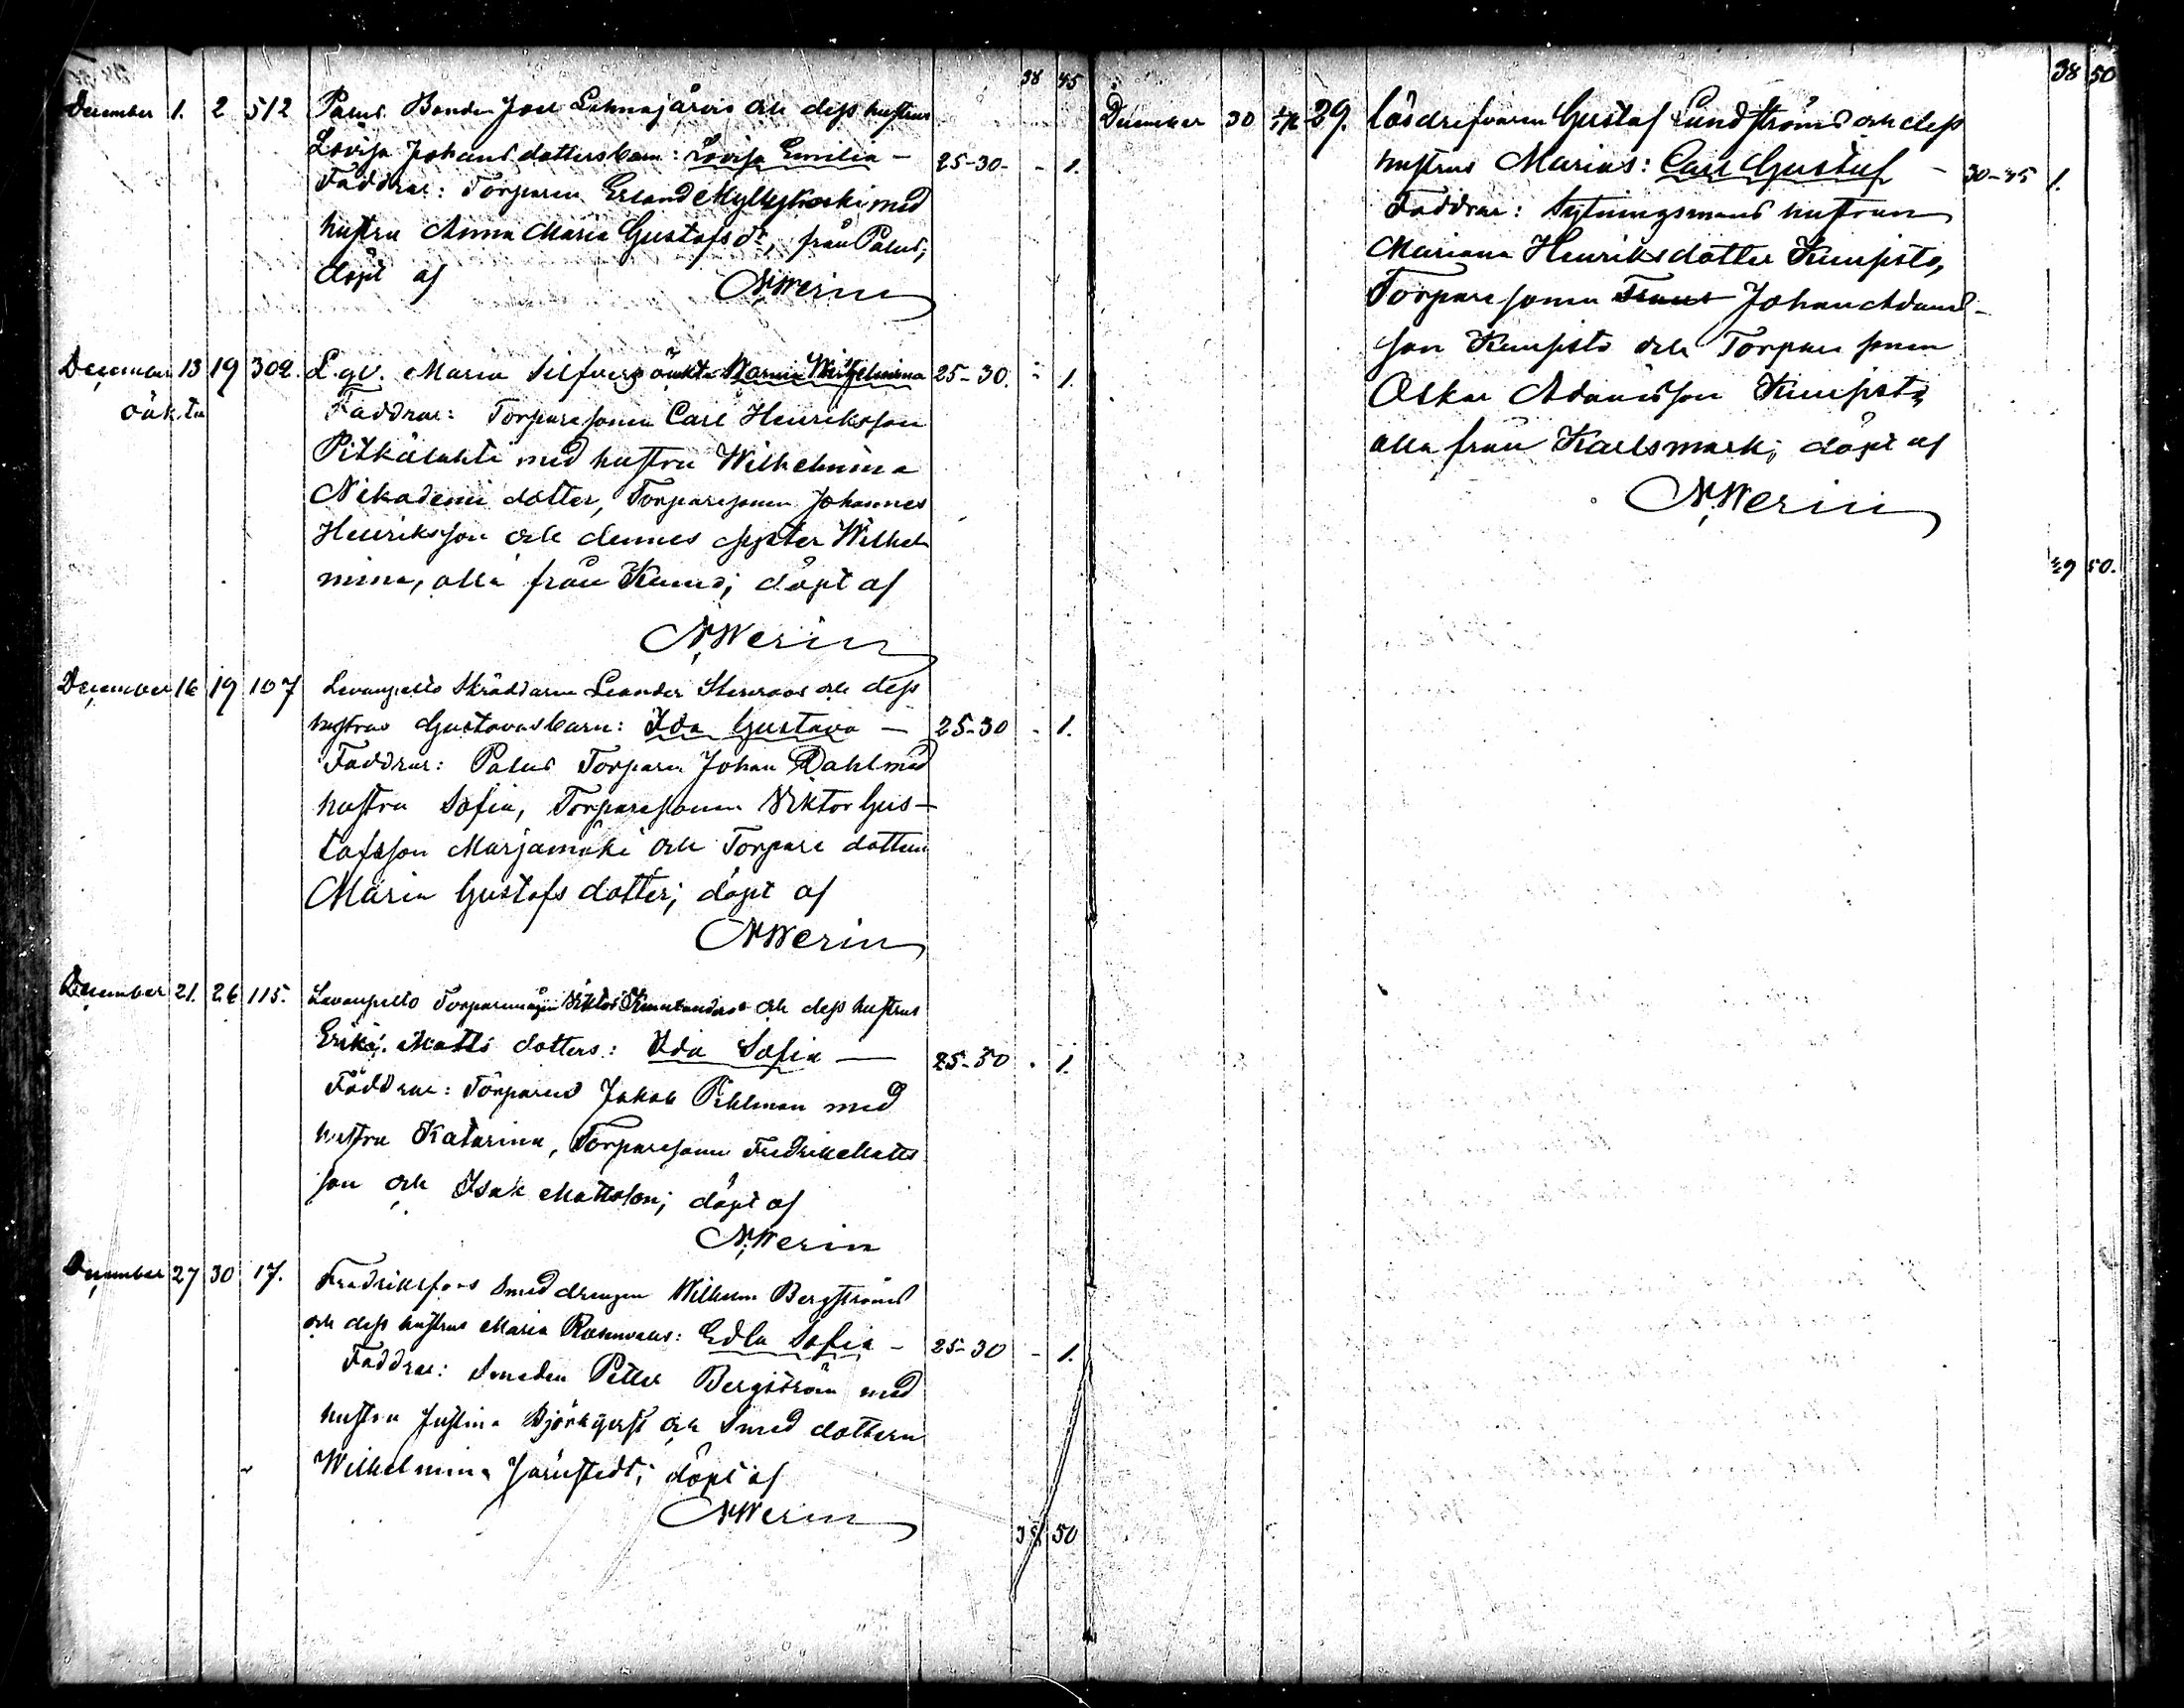 38 45
December 1. 2 512 Palus Bonden Joel Lehmajärvis och dess hustrus
Lovisa Johansdotters barn: Lovisa Emilia – 25-30- - 1.
Faddrar: Torparen Erland Myllykoski med
hustru Anna Maria Gustafsdr, från Palus;
döpt af N. Werin
December 13 19 302. L. qv. Maria Silfvers oäkta Maria Wilhelmina 25-30. - 1.
oäkta Faddrar: Torparesonen Carl Henriksson
Pitkälahti med hustru Wilhelmina
Nikademi dotter, Torparesonen Johannes
Henriksson och dennes syster Wilhel
mina, alla från Kumo; döpt af
N. Werin
December 16 19 107 Levanpelto Skräddaren Leander Stenroos och dess
hustrus Gustavas barn: Ida Gustava – 25-30 - 1.
Faddrar: Palus Torparen Johan Dahl med
hustru Sofia, Torparesonen Viktor Gus-
tafsson Marjamäki och Torpare dottern
Maria Gustafs dotter; döpt af
N Werin
December 21. 26 115. Levanpelto Torparemågen Viktor och dess hustrus
Erika Matts dotters: Ida Sofia — 25-30 - 1.
Faddrar: Torparen Jakob Pihlman med
hustru Katarina, Torparesonen Fredrik Matts
son och Isak Mattsson; döpt af
N. Werin
December 27 30 17. Fredriksfors Smeddrengen Wilhelm Bergströms
och dess hustrus Maria: Edla Sofia – 25-30 - 1.
Faddrar: Smeden Petter Bergström med
hustru Justina Björkqvist och Smed dottern
Wilhelmina Järnstedt; döpt af
N Werin
38 50
38 50
December 30 29. Lösdrifvaren Gustaf Lundströms och dess
hustrus Marias: Carl Gustaf – 30-35 1.
Faddrar: Sytningsmans hustrun
Mariana Henriksdotter Kuusisto,
Torpare sonen Johan Adams-
son Kuusisto och Torpare sonen
Oskar Adamsson Kuusisto,
alla från Karlsmark; döpt af
N. Werin
39 50.